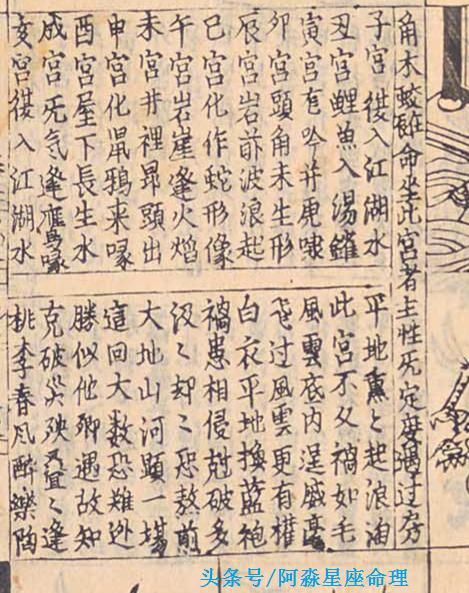 角木蛟雖命坐此宮者主性死定度過过房
子宮從入江湖水 平地熏々起浪淘
丑宮鯉魚入湯鑵 此宮不久禍如毛
寅宮吟并虎嘯 風雲底内逞威豪
卯宮頭角未生形 飛过風雲更有權
辰宮岩前波浪起 白衣平地換藍袍
巳宮化作蛇形像 禍患相侵尅破多
午宮岩崖逢火熖 汲々却々恐熬煎
未宮井裡昴頭出 大地山河顕一塲
申宮化鼠鴉来啄 這回大数恐難逃
酉宮屋下長生水 勝似他鄉遇故知
戌宮死氣逢鷹啄 克破災殃疊々逢
亥宮從入江湖水 桃李春風醉樂陶
头条号/阿淼星座命理